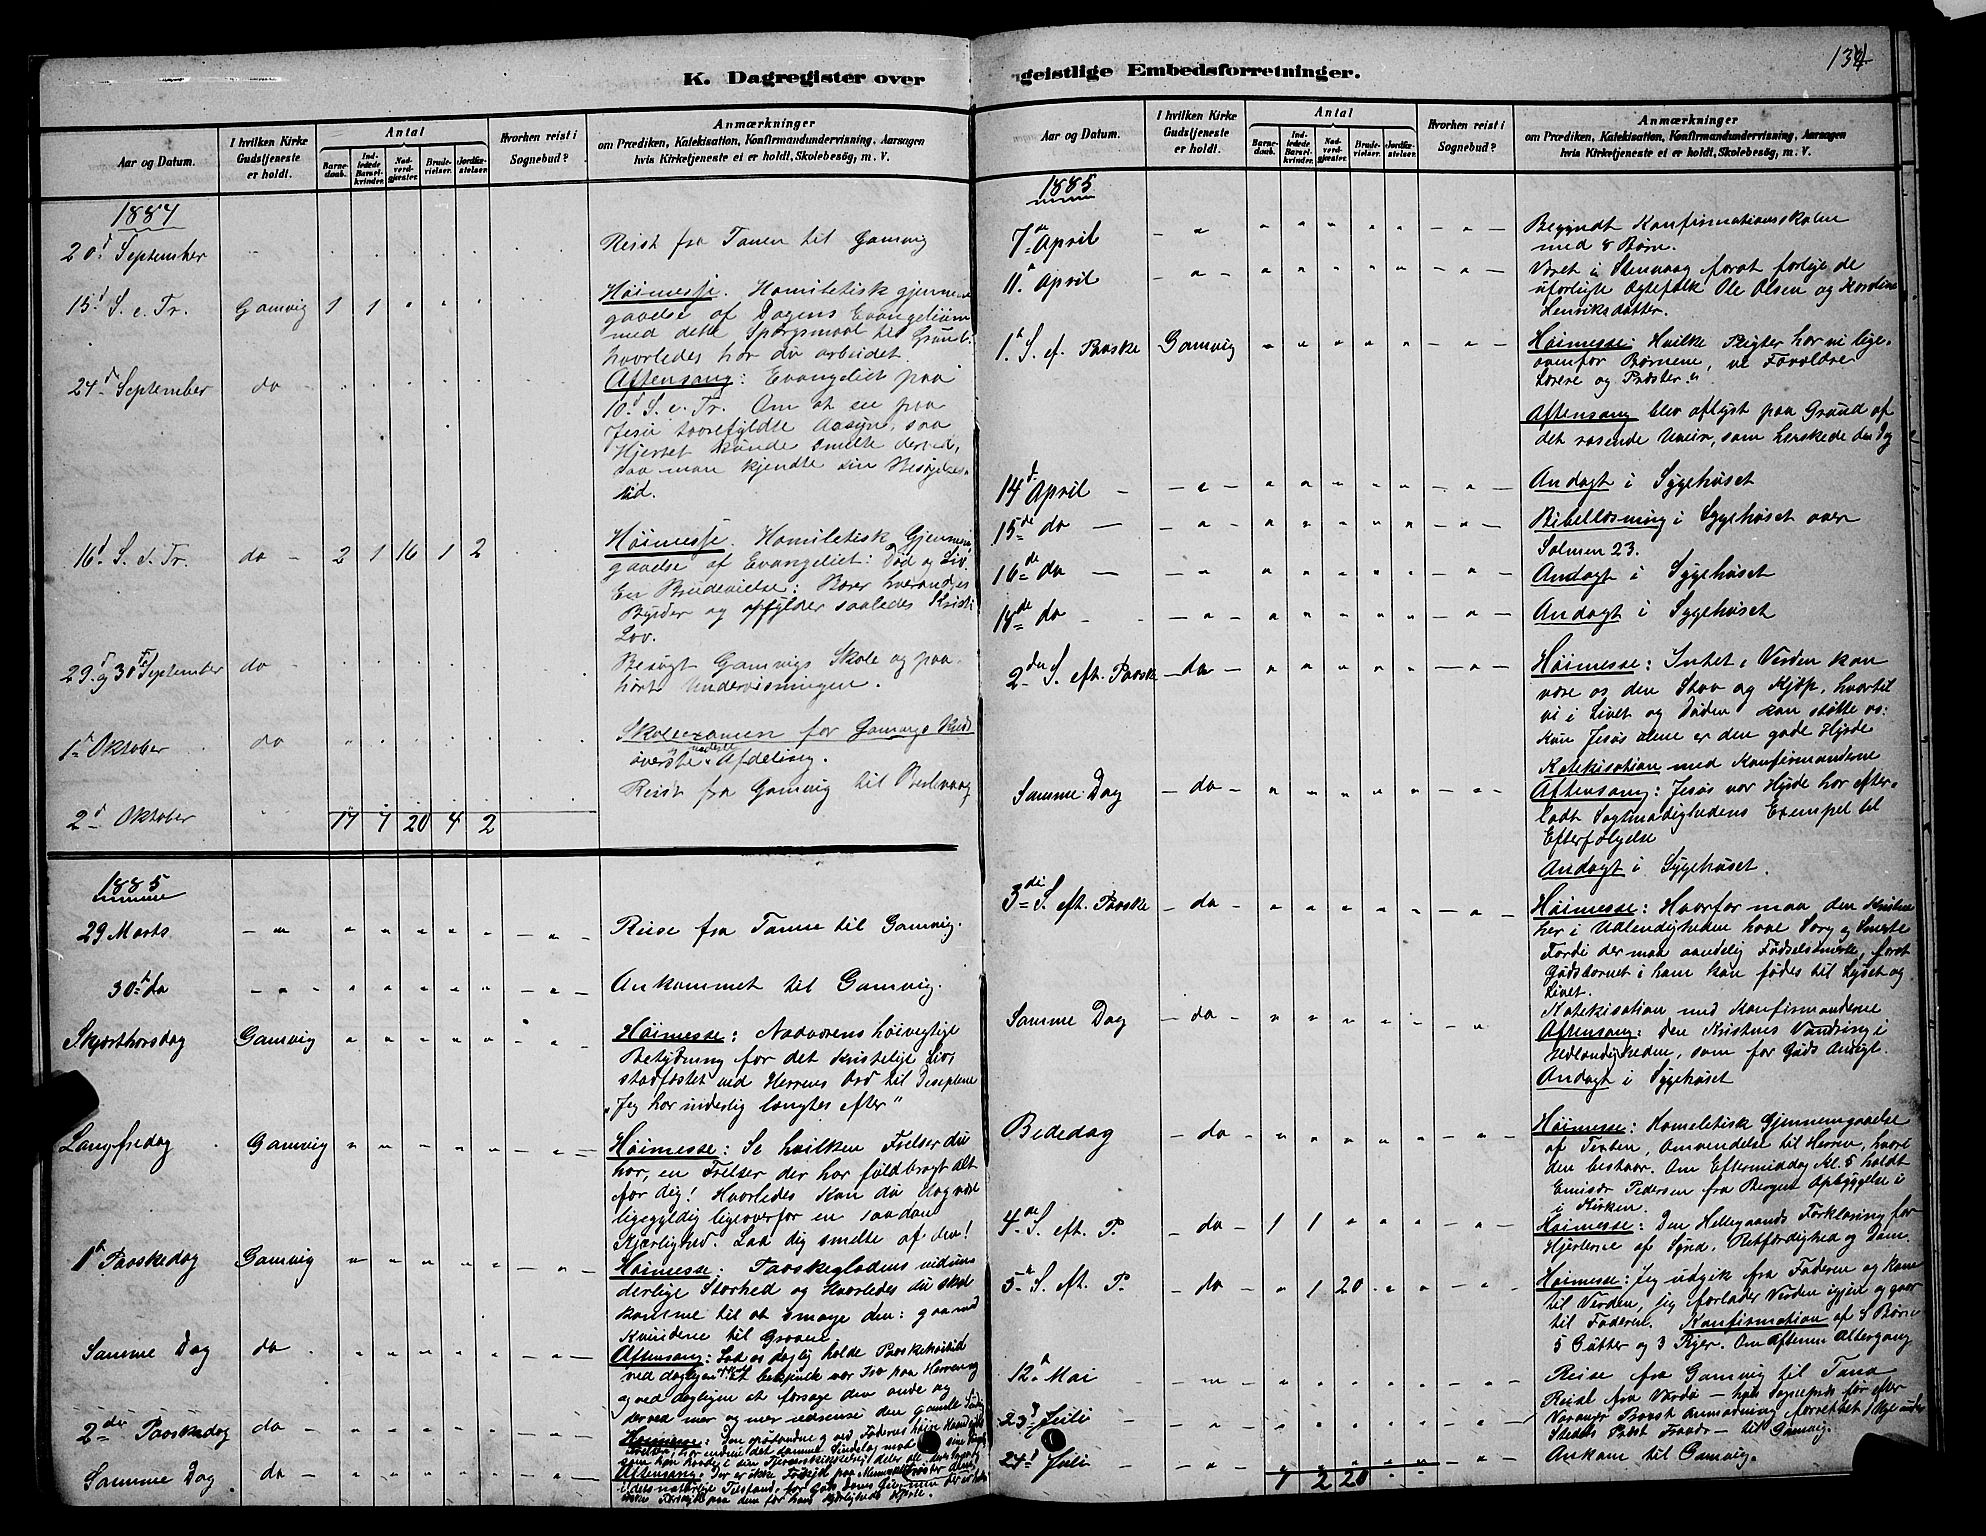 K. Dagregister over
Aar og Datum.
I hvilken Kirke
Gudstjeneste
er holdt.
Antal
Barne-
daab.
Ind-
ledede
Barsel-
kvinder.
Nad-
verd-
gjæster.
Brude-
vielser.
Jordfæ-
stelser.
Hvorhen reist i
Sognebud?
Anmærkninger
om Prædiken, Katekisation, Konfirmandundervisning, Aarsagen
hvis Kirketjeneste ei er holdt, Skolebesög, m. V.
1884
20d September Reist fra Tanen til Gamvig
15d S. e. Tr. Gamvig 1 1 " " " Höimesse. Homiletisk gjennem-
gaaelse af Dagens Evangelium
med dette Spørgsmaal til Grund:
hvorledes har du arbeidet.
24d September do Aftensang: Evangeliet paa
10d S. e. Tr. Om at se paa
Jesu taarefyldte Aasyn, saa
Hjertet kunde smelte derved,
saa man kjendte sin Besøgelses-
tid.
16d S. e. Tr. do 2 1 16 1 2 Höimesse. Homiletisk Gjennem-
gaaelse af Evangeliet: Død og Liv.
En Brudevielse: Bærer hverandres
Byrder og opfylder saaledes Kristi
Lov.
29d og 30te September do Besøgt Gamvigs Skole og paa-
hørt Undervisningen.
1d Oktober do Skoleexamen for Gamvigs Kreds
øverste Afdeling.
nederste
2d Oktober Reist fra Gamvig til Berlevaag
17 7 20 4 2
1885
29 Marts Reise fra Tanen til Gamvig.
30te do Ankommet til Gamvig.
Skjærthorsdag Gamvig Höimesse: Nadverens høivigtige
Betydning for det kristelige Liv,
stadfæstet ved Herrens Ord til Disiplene
"Jeg har inderlig længtes efter"
Langfredag Gamvig Höimesse: Se hvilken Frelser du
har, en Frelser der har fuldbragt alt
for dig! Hvorledes kan du dog være
ligegyldig ligeoverfor en saadan
Kjærlighed. Lad dig smelte af den!
1te Paaskedag Gamvig Höimesse: Paaskeglædens vidun-
derlige Storhed og Hvorledes du skal
komme til at smage den: gaa med
Kvinderne til Graven.
Samme Dag do Aftensang: Lad os daglig holde Paaskehøitid
ved dagligen at bekjende vor Tro paa Herren og
og ved dagligen at forsage den onde og
derved mer og mer udrense den gamle Surdeig
2den Paaskedag do Höimesse:
Samme Dag do Aftensang: Der er ikke Frihed paa
geistlige Embedsforretninger.
134
Aar og Datum.
I hvilken Kirke
Gudstjeneste
er holdt.
Antal
Barne-
daab.
Ind-
ledede
Barsel-
kvinder.
Nad-
verd-
gjæster.
Brude-
vielser.
Jordfæ-
stelser.
Hvorhen reist i
Sognebud?
Anmærkninger
om Prædiken, Katekisation, Konfirmandundervisning, Aarsagen
hvis Kirketjeneste ei er holdt, Skolebesög, m. V.
1885
7de April Begyndt Konfirmationsskolen
med 8 Børn.
11te April Været i Stenvaag forat forlige de
uforligte Ægtefolk Ole Olsen og
Henriksdatter.
1te S. ef. Paaske Gamvig Höimesse: Hvilke Pligter har vi lige-
ovenfor Børnene, vi Forældre
Lærere og Præster."
Aftensang blev aflyst paa Grund af
det rasende Uveir, som herskede den Dag
14de April Andagt i Sygehuset
15de do Bibellæsning i Sygehuset over
Salmen 23.
16de do Andagt i Sygehuset
18de do Andagt i Sygehuset
2den S. eft. Paaske do Höimesse: Intet i Verden kan
være os den Stav og Kjæp, hvortil
vi i Livet og Døden kan støtte os:
kun Jesus alene er den gode Hyrde
Katekisation med Konfirmanderne
Samme Dag do Aftensang: Jesus vor Hyrde har efter-
ladt Sagtmodighedens Exempel til
Efterfølgelse
Andagt i Sygehuset.
3die S. eft. Paaske do Höimesse: Hvorfor maa den Kristne
her i Udlændigheden have Sorg og Smerte
Fordi der maa aandelig Fødselssmerte, forat
Gudsbarnet i ham kan fødes til Lyset og
Livet.
Katekisation med Konfirmanderne
Samme Dag do Aftensang: Den Kristnes Vandring i
Udlændigheden, som for Guds Ansigt.
Andagt i Sygehuset
Bededag do Höimesse: Homiletisk Gjennemgaaelse
af Texten, Omvendelse til Herren, hvori
den bestaar. Om Eftermiddag Kl. 5 holdt
Emisær Pedersen fra Bergen Opbyggelse i
i Kirken.
4de S. eft. P. do 1 1 Höimesse: Den Helligaands Forklaring for
Hjerterne af Synd, Retfærdighed og Dom.
5te S. eft. P. do 1 20 Höimesse: Jeg udgik fra Faderen og kom
til Verden, jeg forlader Verden igjen og gaar
til Faderen. Konfirmation af 8 Børn
5 Gutter og 3 Piger. Om Aftenen Altergang
12te Mai Reise fra Gamvig til Tana
23d Juli Reist fra Vardø — efter
Varanger Provst Anmodning
til Gamvig.
24d Juli Ankom til Gamvig.
1 2 20